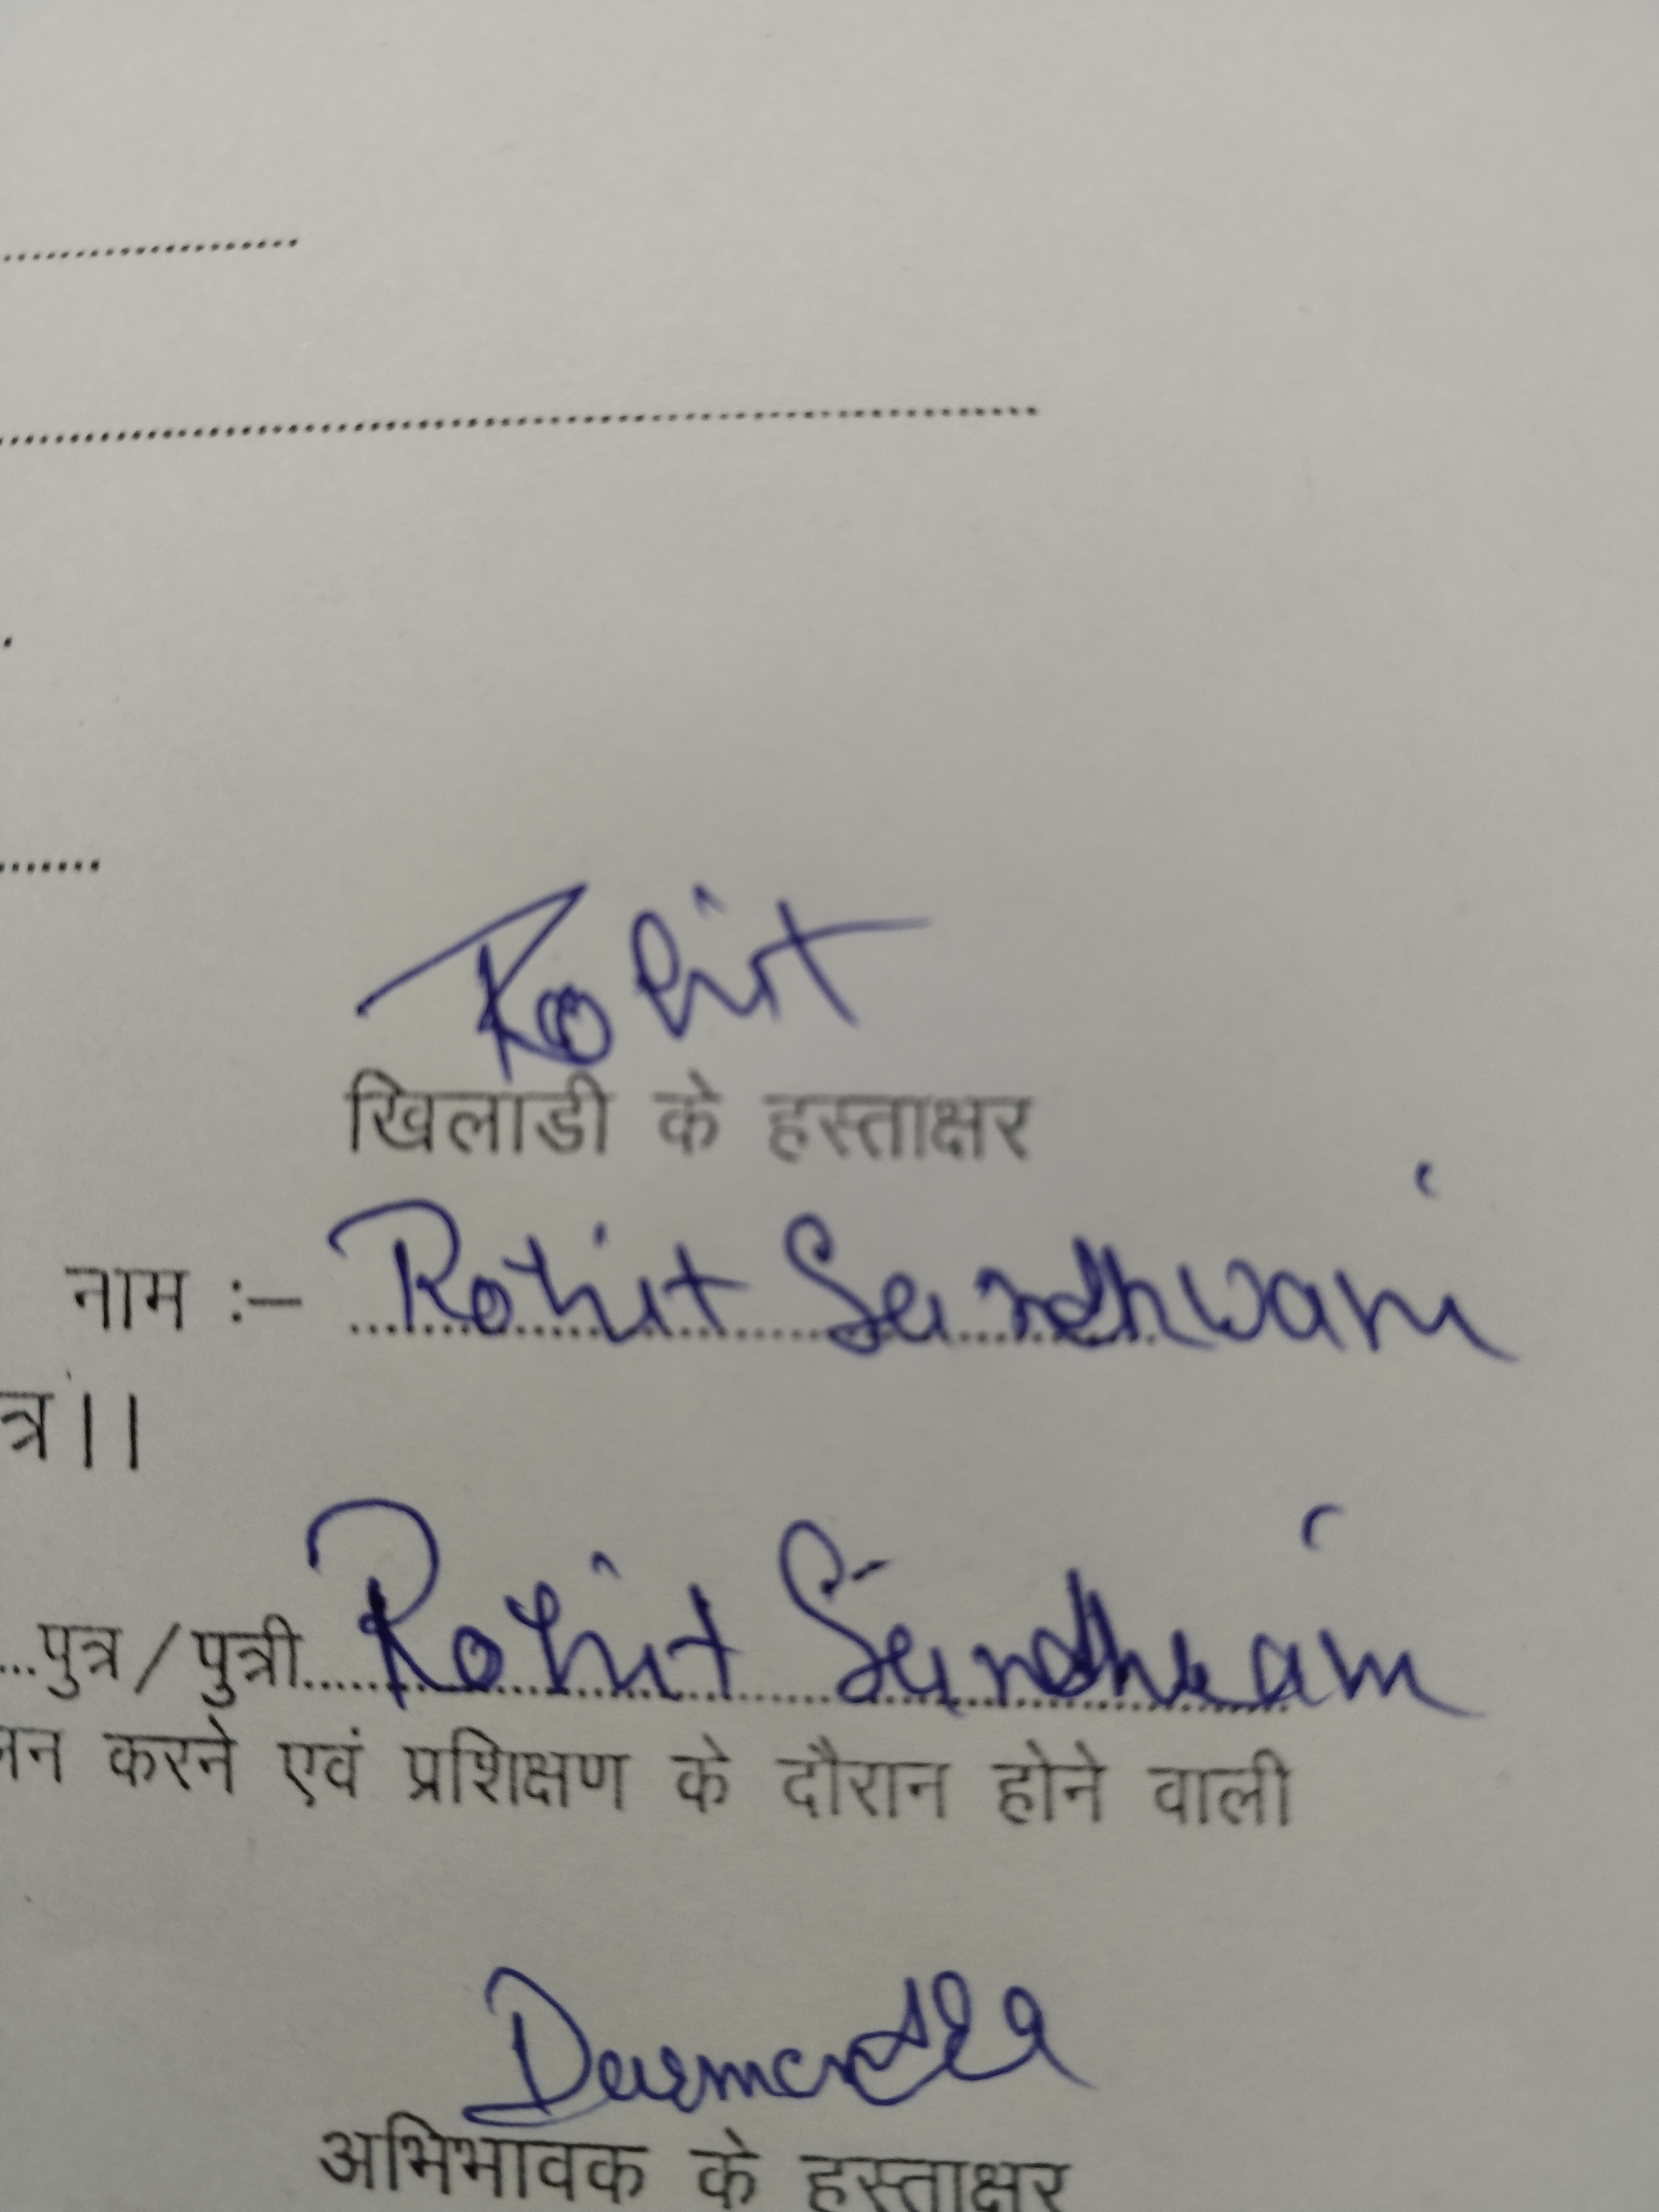 Rohit
खिलाडी के हस्ताक्षर
नाम :– Rohit Sandhwani
त्र।।
...पुत्र/पुत्री....Rohit Sandhwani
करने एवं प्रशिक्षण के दौरान होने वाली
अभिभावक के हस्ताक्षर